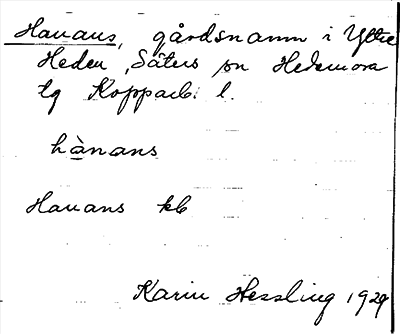 Hanans, gårdsnamn i Yttre
Heden, Säters sn Hedemora
tg Kopparb. l.
hànans
Hanans kb
Karin Hessling 1929